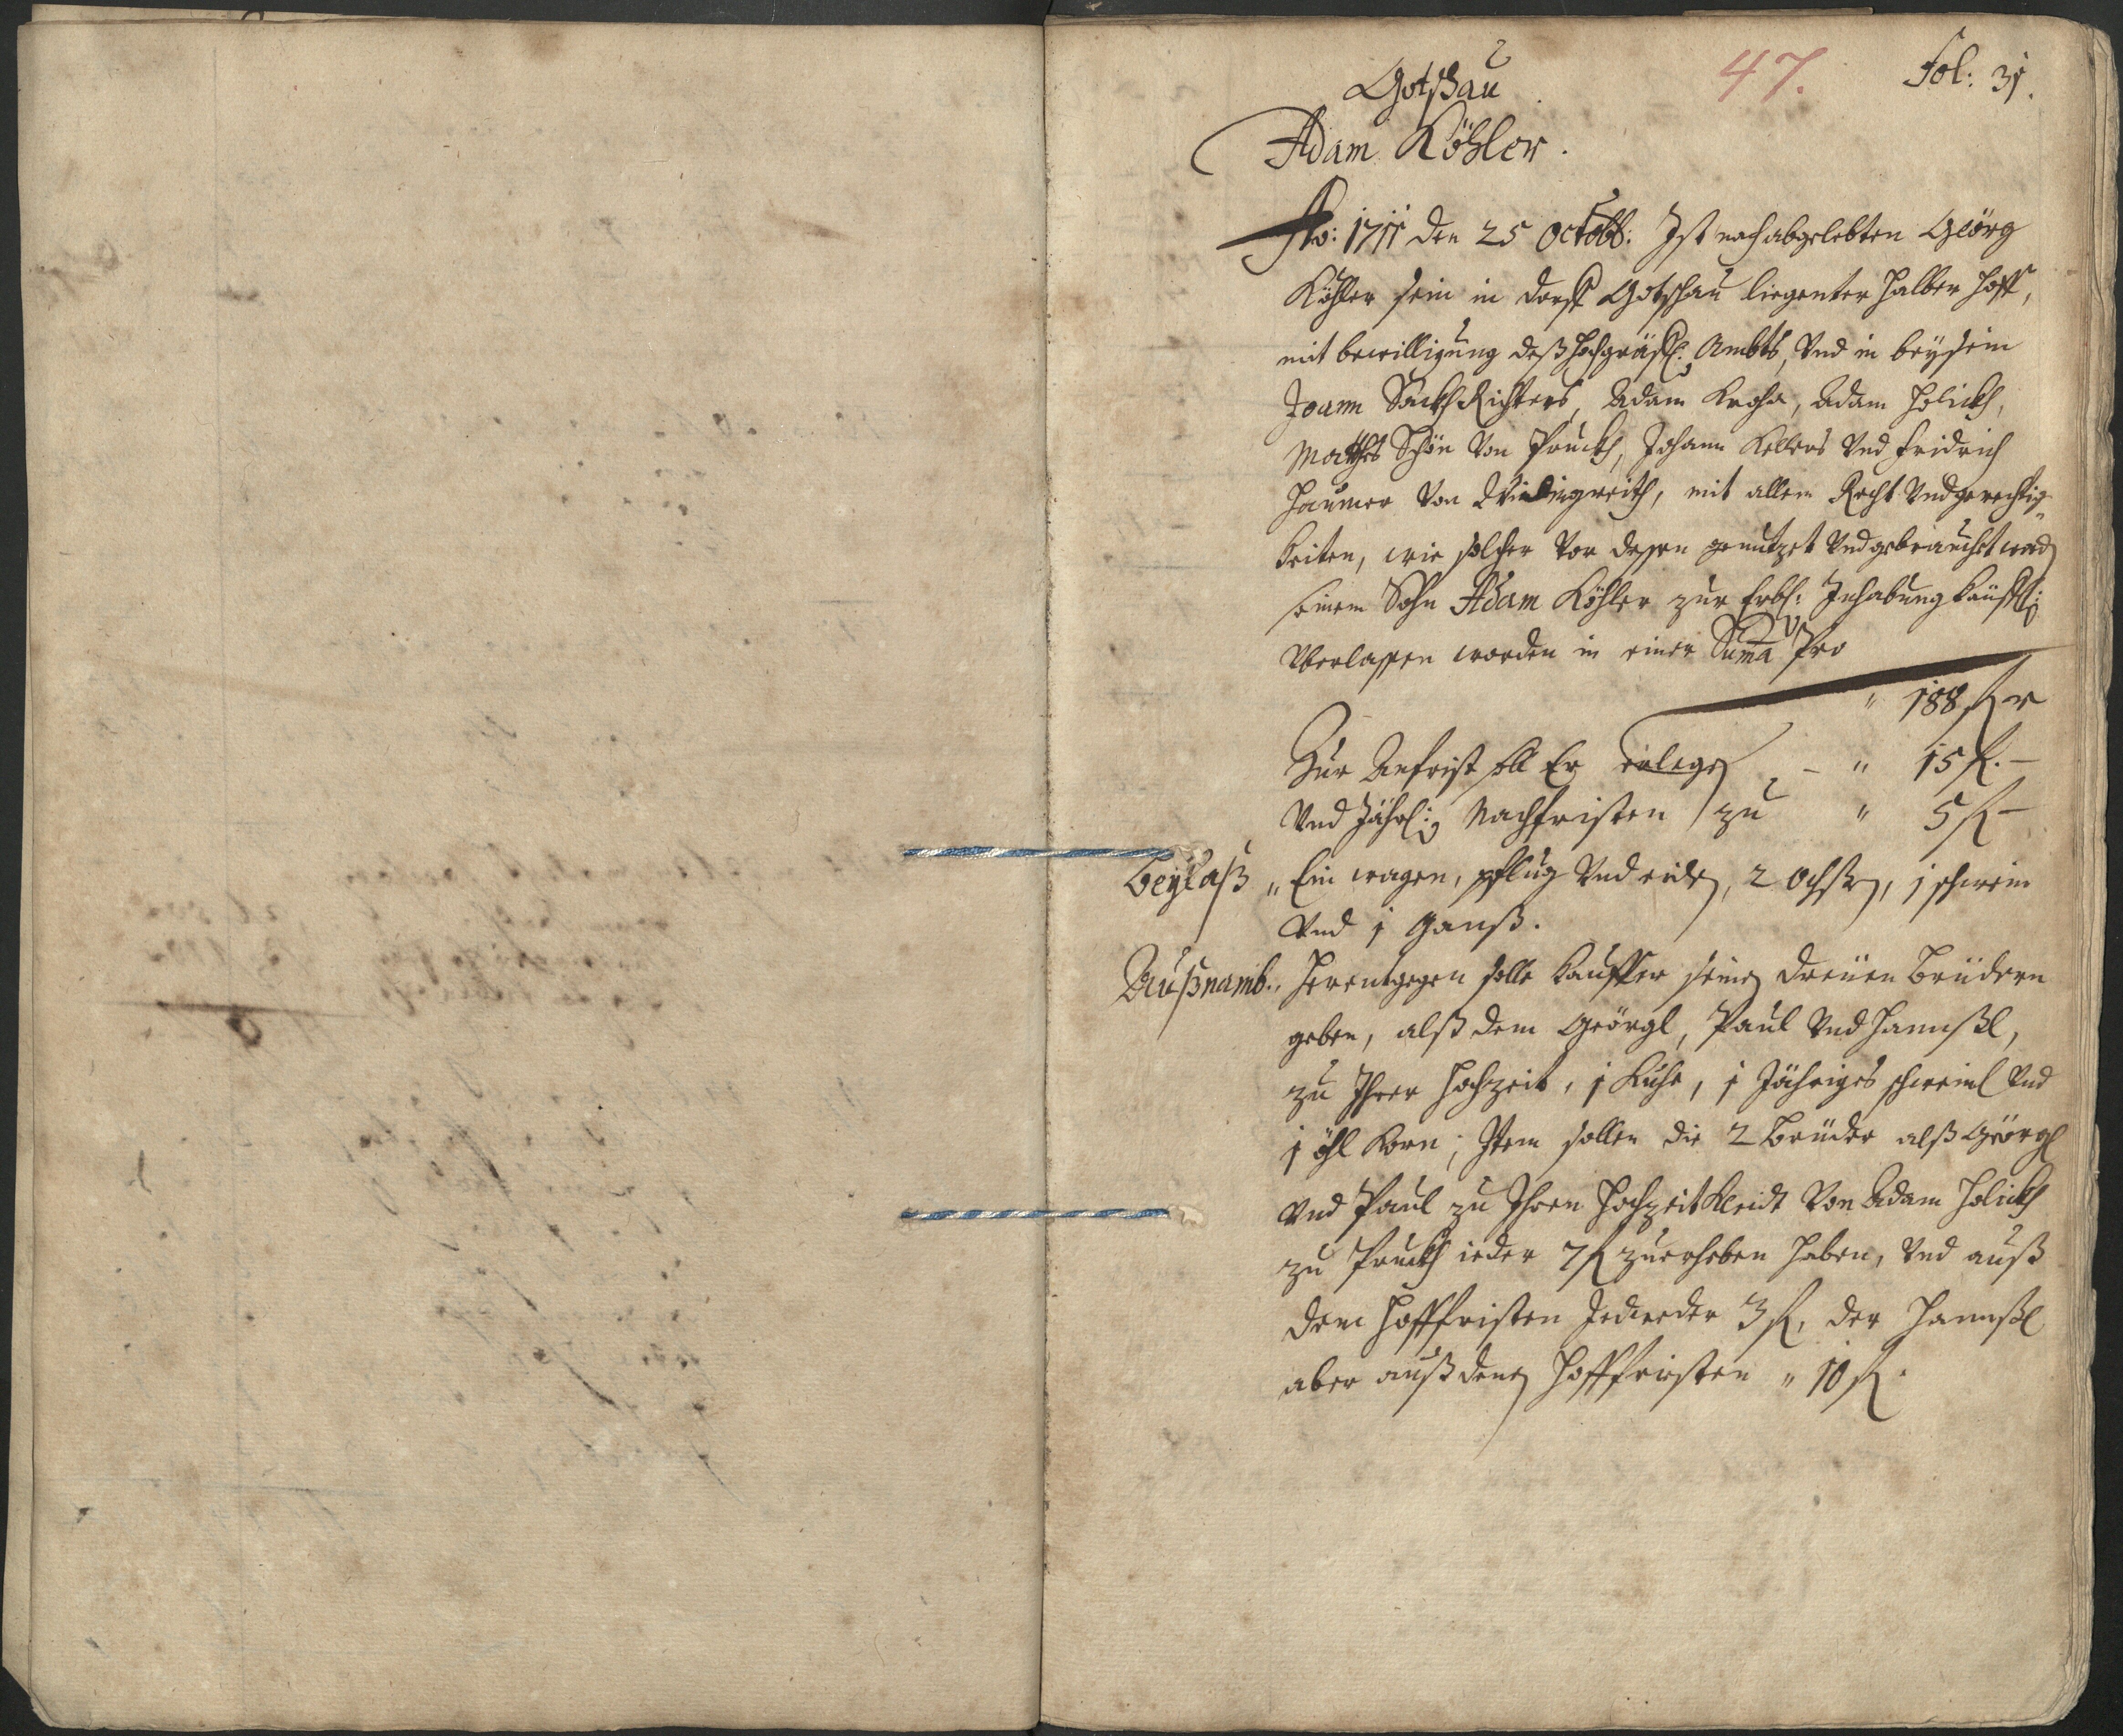 Gotschau
47.
Fol: 31.
Adam Köhler.
Ao: 1711 den 25 Octobb: Ist nach abgelebten Geörg
Köhler sein in dorff Gotschau liegenter halber hoff,
mit bewilligung deß hochgräffl: Ambts, Vnd in beysein
Joann Säckh Richters, Adam Kroha, Adam Holickh,
Matthes Schön Von Pruckh, Johann Kellers Vnd fridrich
Haumer Von Windingreith, mit allem Recht Vnd gerechtig„
keiten, wie solcher Vor dessen genutzet Vnd gebrauchet word
seinem Sohn Adam Köhler zur Erbl: Inhabung käuffl:
Vberlassen worden in einer Suma Pro
„ 188 fl
Zur Anfrist soll Er erlegen – „ 15 fl. –
Vnd Jährl: Nachfristen zu „ 5 fl –
Beylaß „ Ein wagen, pflug Vnd eiden, 2 Ochssen, 1 schwein
Vnd 1 Ganß.
Außnamb. „ Herentgegen solle Kauffer seinen dreüen Brüdern
geben, alß dem Geörgl, Paul Vnd Hannßl,
zu Ihrer Hochzeit, 1 Kuhe, 1 Jähriges schweinl Vnd
1 öhl Korn; Item sollen die 2 Brüder alß Geörgl
Vnd Paul zu Ihren Hochzeit Kleidt Von Adam Holickh
zu Pruckh ieder 7 fl zuerheben haben, Vnd auß
dem Hofffristen Jedweder 3 fl, der Hannßl
aber auß denen Hofffristen „ 10 fl.